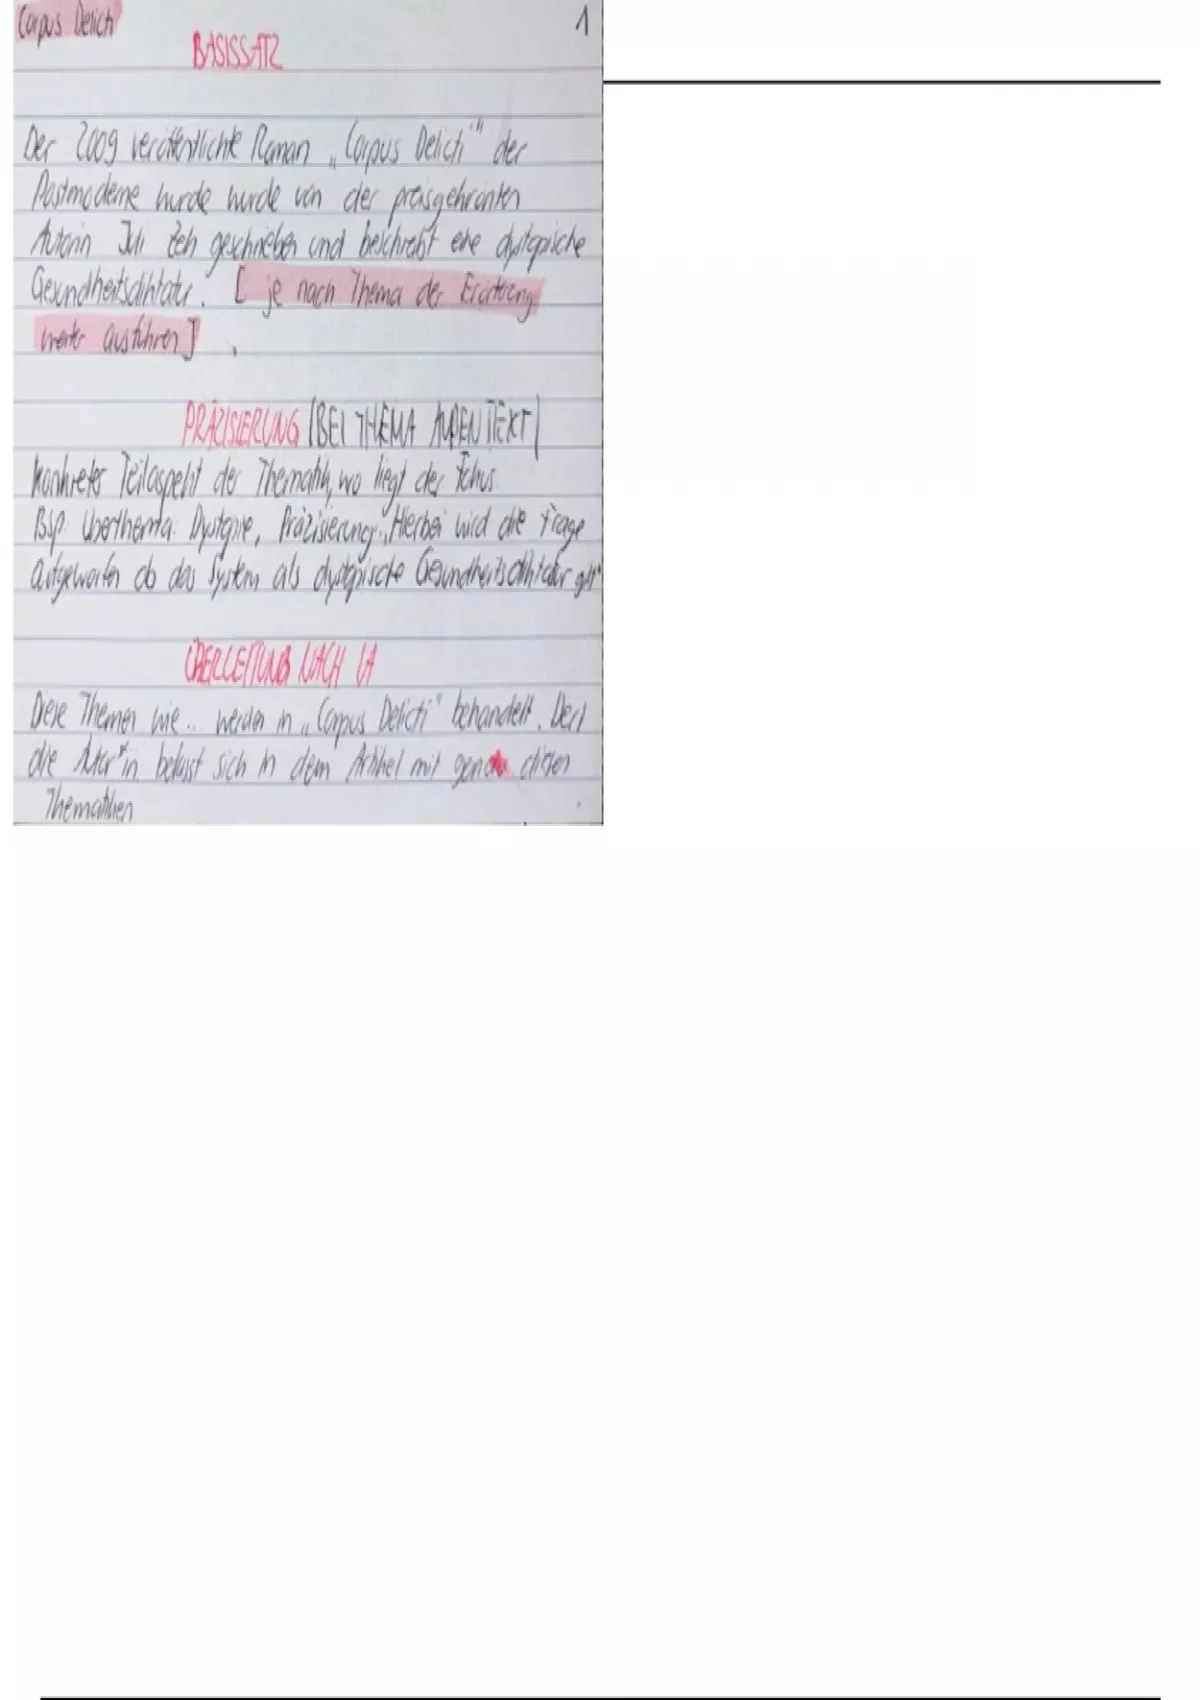 Corpus Delicti
1
BASISSATZ
Der 2009 veröffentlichte Roman „Corpus Delicti" der
Postmoderne wurde wurde von der preisgekrönten
Autorin Juli Zeh geschrieben und beschreibt eine dystopische
Gesundheitsdiktatur. [ je nach Thema der Erörterung
weiter ausführen]
PRÄZISIERUNG (BEI THEMA AUßEN TEXT)
konkreter Teilaspekt der Thematik, wo liegt der Fokus.
Bsp. Überthema: Dystopie, Präzisierung: „Hierbei wird die Frage
aufgeworfen ob das System als dystopische Gesundheitsdiktatur gilt"
ÜBERLEITUNG NACH IA
Diese Themen wie... werden in „Corpus Delicti" behandelt.
die Autor*in befasst sich in dem Artikel mit genau diesen
Thematiken